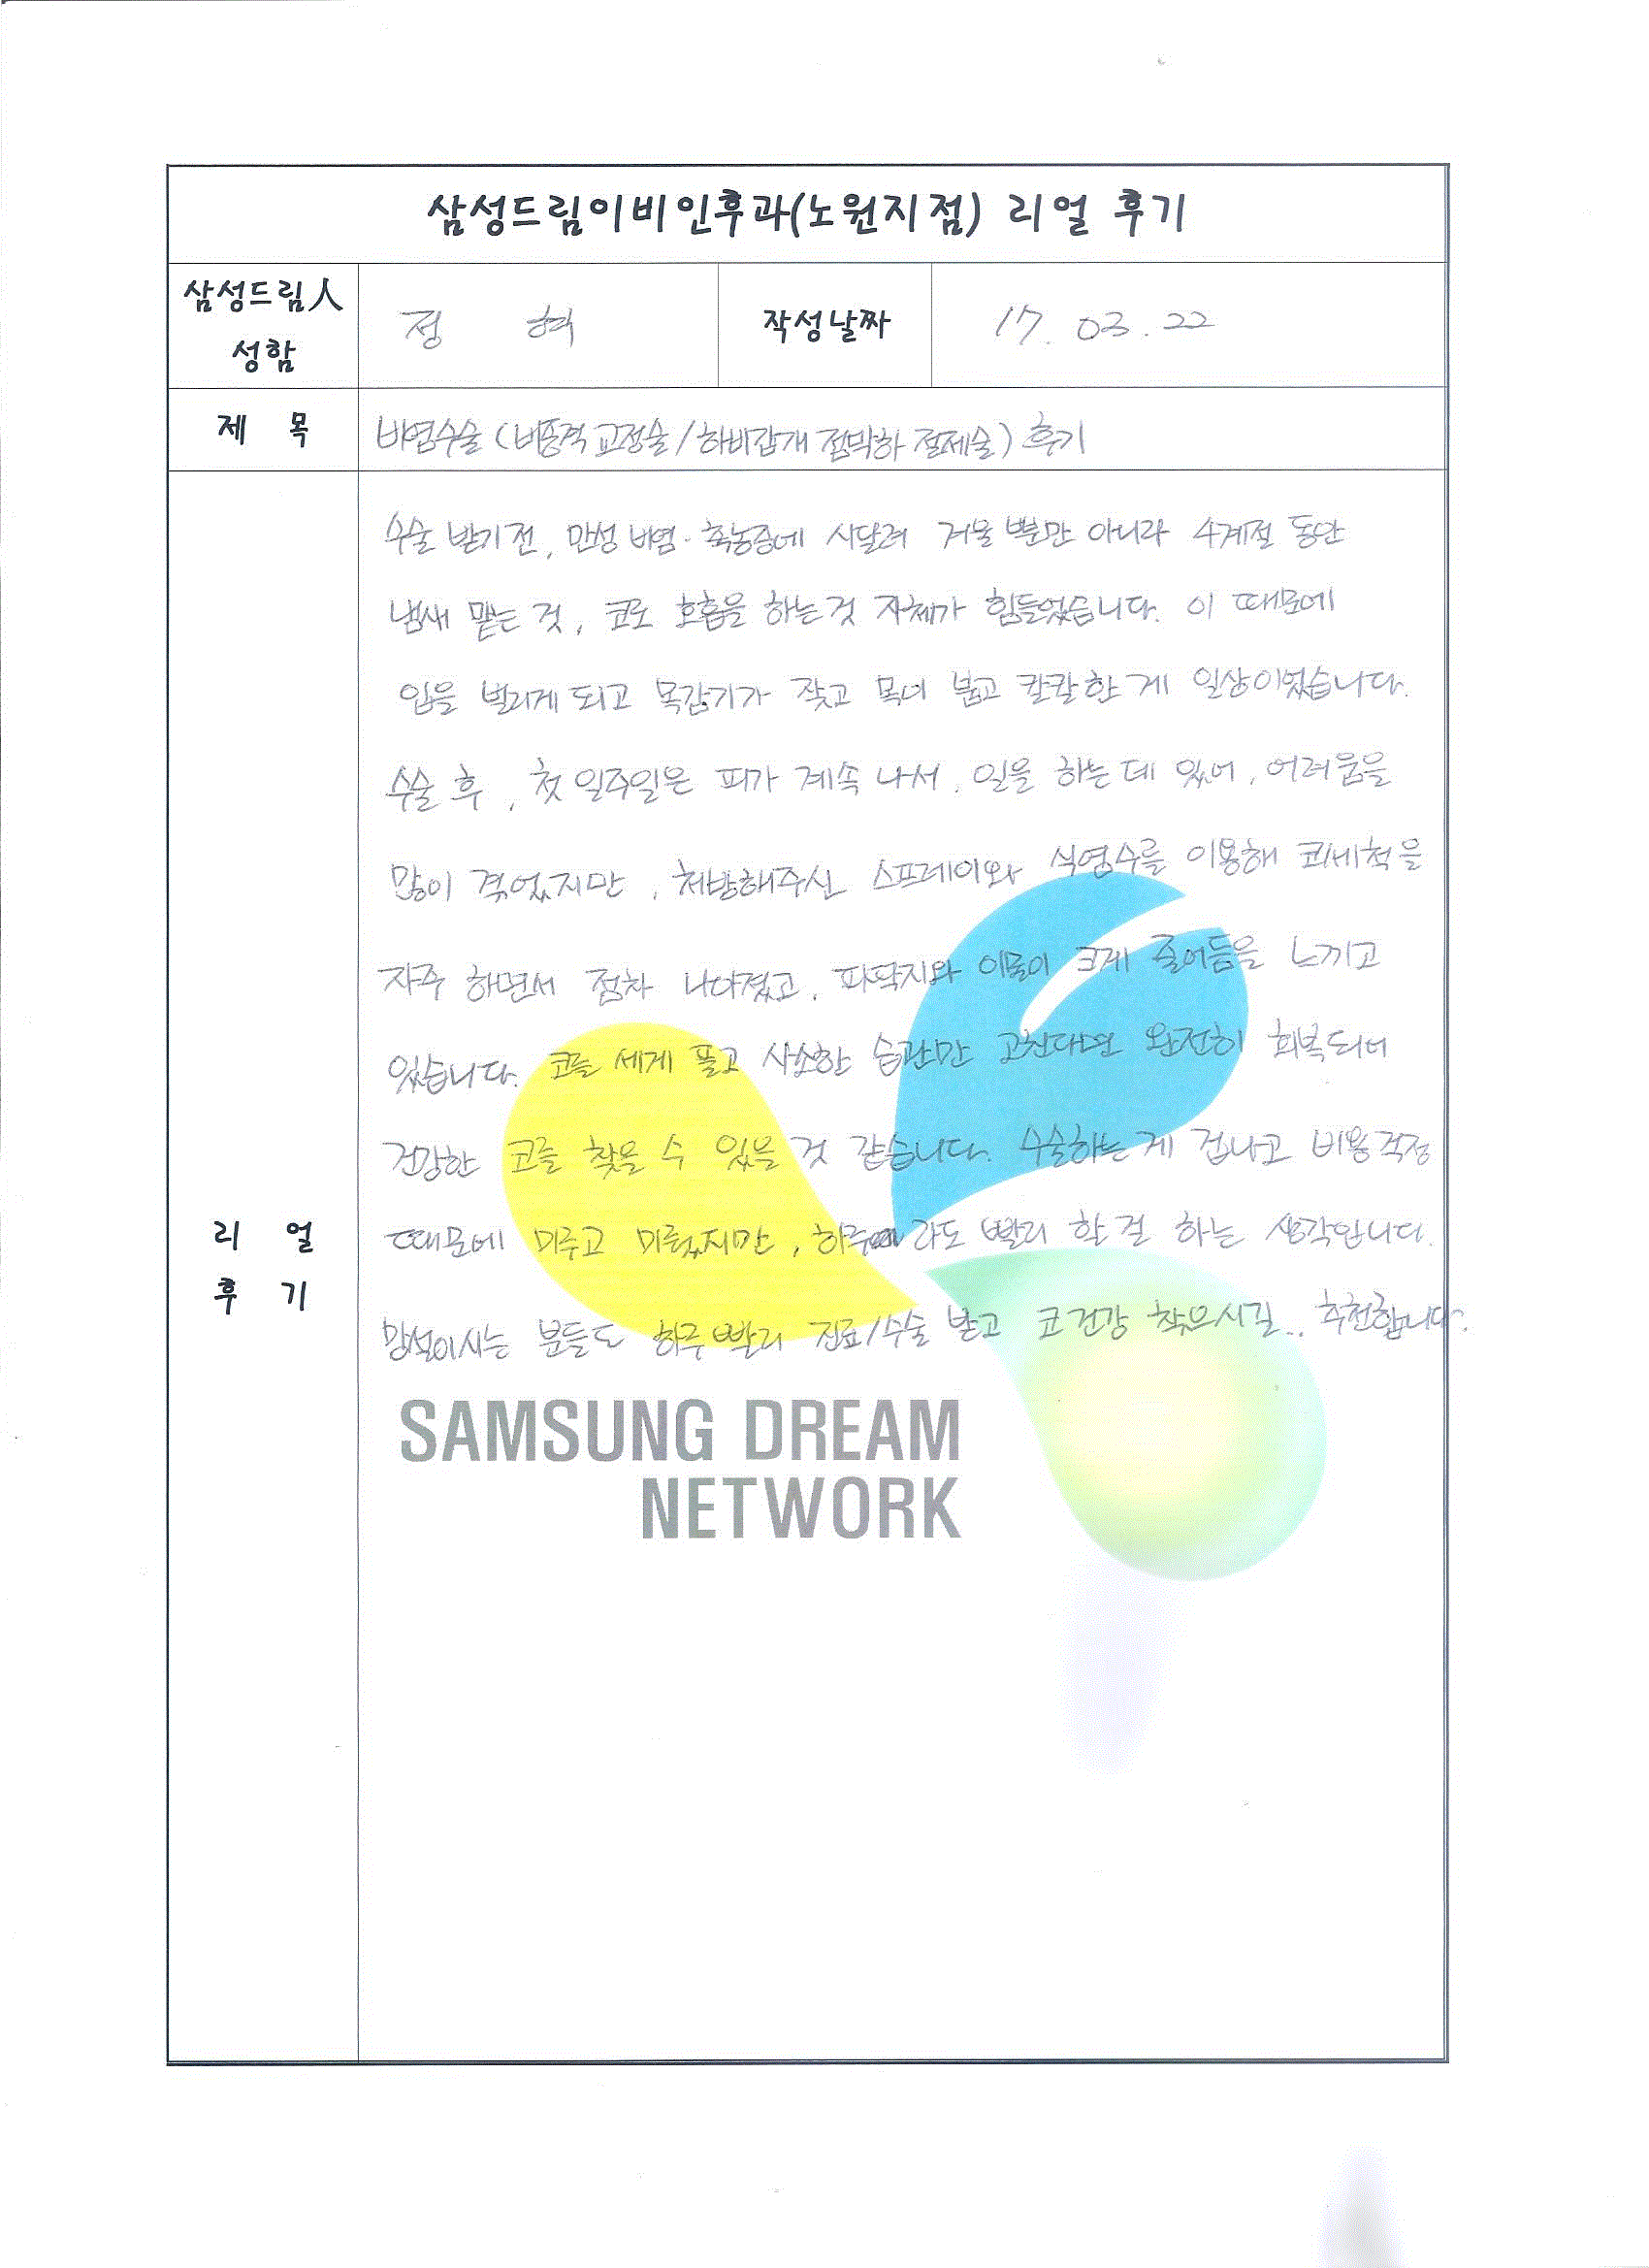 삼성드림이비인후과(노원지점) 리얼 후기
삼성드림人
성함
정 혁
작성날짜
17. 03. 22
제 목
비염수술 (비중격 교정술 / 하비갑개 점막하 절제술) 후기
리 얼
후 기
수술 받기 전, 만성 비염·축농증에 시달려 겨울 뿐만 아니라 4계절 동안
냄새 맡는 것, 코로 호흡을 하는 것 자체가 힘들었습니다. 이 때문에
입을 벌리게 되고 목감기가 잦고 목이 붓고 칼칼한 게 일상이었습니다.
수술 후, 첫 일주일은 피가 계속 나서, 일을 하는 데 있어, 어려움을
많이 겪었지만, 처방해주신 스프레이와 식염수를 이용해 코세척을
자주 하면서 점차 나아졌고, 피딱지와 이물이 크게 줄어듬을 느끼고
있습니다. 코를 세게 풀고 사소한 습관만 고친다면 완전히 회복되어
건강한 코를 찾을 수 있을 것 같습니다. 수술하는 게 겁나고 비용걱정
때문에 미루고 미뤘지만, 하루라도 빨리 할 걸 하는 생각입니다.
망설이시는 분들도 하루 빨리 진료/수술 받고 코 건강 찾으시길.. 추천합니다.
SAMSUNG DREAM
NETWORK